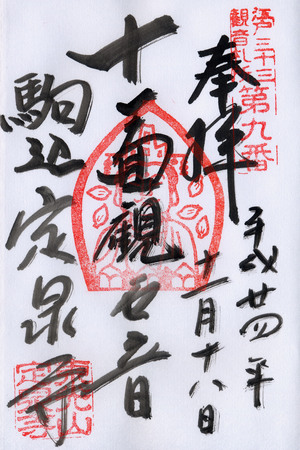 江戸三十三
観音札所第九番
奉拝
平成廿四年
十一月十八日
十一面観世音
駒込定泉寺